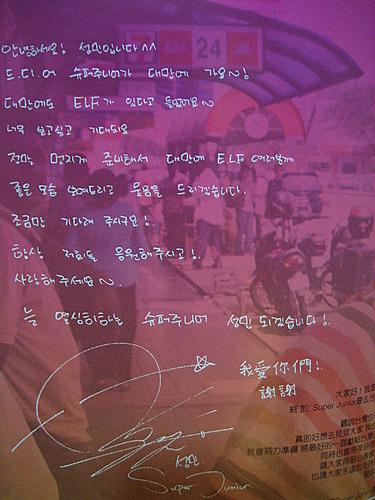 안녕하세요! 성민입니다^^
드.디.어 슈퍼주니어가 대만에 가요~!
대만에도 ELF가 있다고 들었어요~
너무 보고싶고 기대되요
정말 멋지게 준비해서 대만에 ELF 여러분께
좋은 모습 보여드리고 웃음을 드리겠습니다.
조금만 기다려 주시구요!.
항상 저희를 응원해주시고!.
사랑해주세요~.
늘 열심히하는 슈퍼주니어 성민 되겠습니다!.
我愛你們!.
謝謝
성민.
Super Junior.
24
大家好!我是
終於 Super Junior要去台
聽說台灣也
真的好想去見見大家 我也
我會努力準備 將最好的一面獻給台灣
同時也會將笑容
請大家再耐心等
也請大家永遠的支持